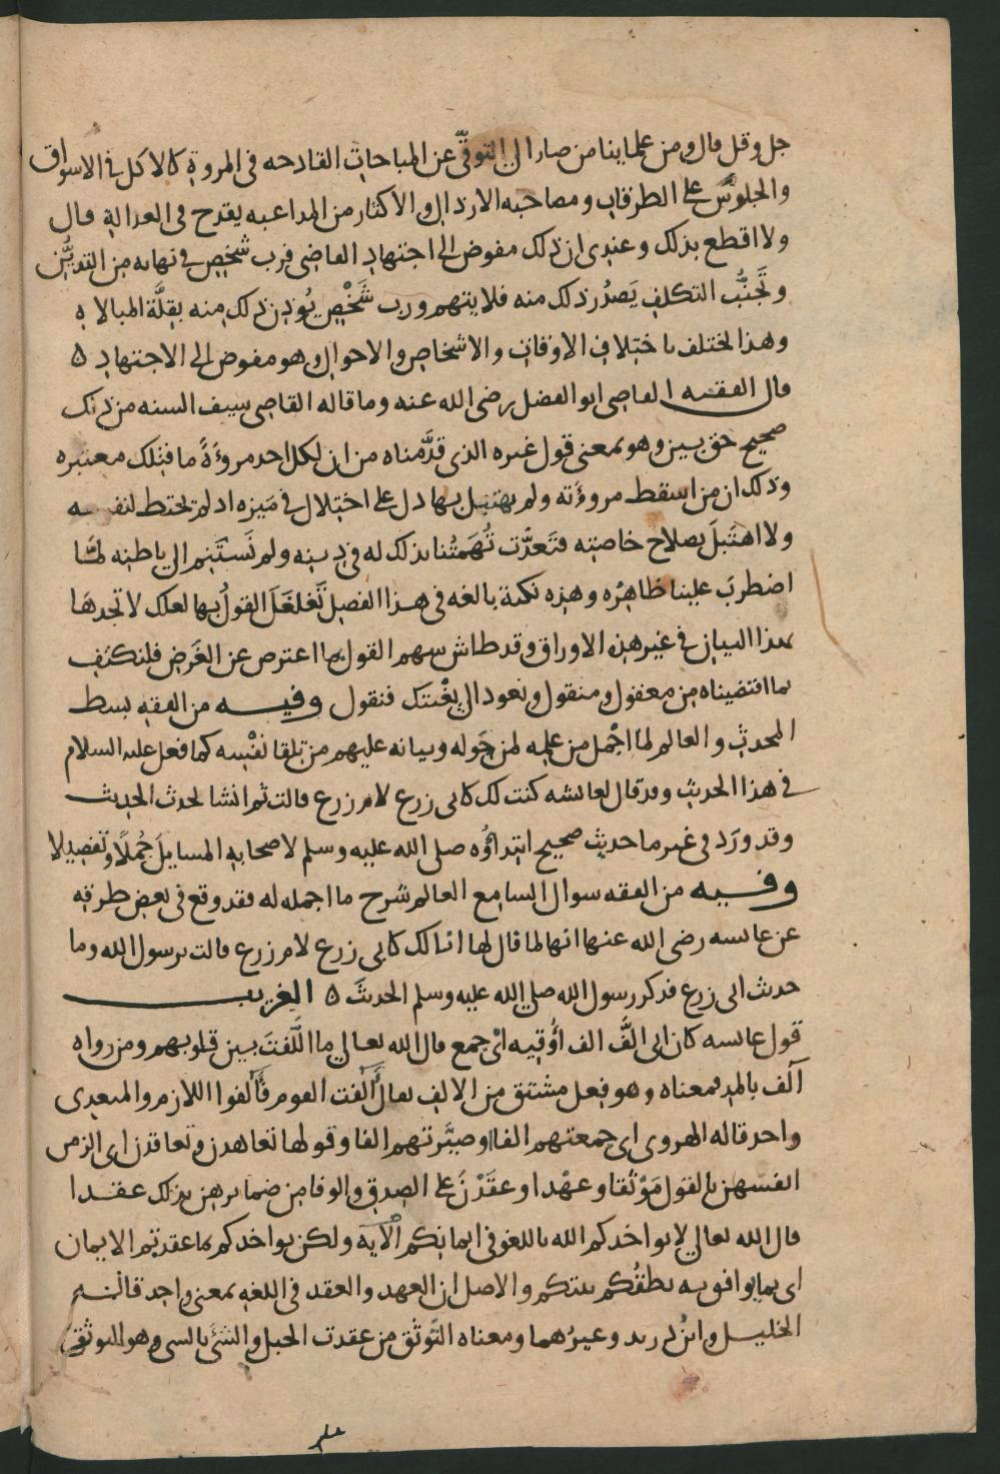 جل وقل قال ومن علماينا من صار الى التوقّي عن المباحات القادحه في المروة كالاكل في الاسواق
والجلوس على الطرقات ومصاحبه الارذال والاكثار من المداعبه يقدح في العدالة قال
ولا اقطع بذلك وعندي ان ذلك مفوض الى اجتهاد القاضي فرب شخص في نهايه من التديُّن
وتَجنُّب التكلف يَصدُر ذلك منه فلا يتهم ورب شَخْصٍ يُوذن ذلك منه بقلَّة المبالاه
وهذا يختلف باختلاف الاوقات والاشخاص والاحوال وهو مفوض الى الاجتهاد ه
قال الفقيه القاضي ابو الفضل رضى الله عنه وما قاله القاضي سيف السنه من ذلك
صحيح حق بين وهو بمعنى قول غيره الذي قدَّمناه من ان لكل احد مروءَةً ما فتلك معتبره
وذلك ان من اسقط مروءَته ولم يهتبل بها دل على اختلال في مَيزه اذ لم يحتط لنفسه
ولا اهتَبلَ بصلاح خاصته فتَعدَّت تُهَمتُنا بذلك له في دينه ولم نَستَنِم الى باطنه لمَّا
اضطربَ علينا ظاهرُه وهذه نكتة بالغه في هذا الفصل تَغلغَلَ القولُ بها لعلك لا تجدها
بهذا البيان في غير هذه الاوراق وقد طاش سهم القول بما اعترض عن الغَرض فلنكتفِ
بما اقتضيناه من معقول ومنقول ونعود الى بغْيتك فنقول وفيه من الفقه بسط
المحدث والعالم لما اجْمل من علمه لمن حَوله وبيانه عليهم من تلقا نفْسه كما فعل عليه السلام
في هذا الحديث وقد قال لعائشه كنت لك كابي زرع لام زرع قالت ثم انشا يحدث الحديث
وقد ورَد في غير ما حديث صحيح ابتداؤُه صلى الله عليه وسلم لاصحابه المسايلَ جُملًا وتفصيلا
وفيه من الفقه سوال السامع العالم شرح ما اجمله له فقد وقع في بعض طرقه
عن عائشه رضى الله عنها انها لما قال لها انا لك كابي زرع لام زرع قالت يرسول الله وما
حدث ابي زرع فذكر رسول الله صلى الله عليه وسلم الحديثَ ه الغريب
قول عائشه كان ابي الَّف الف اُوقيه ائ جمع قال الله تعالى ما الَّفتَ بين قلوبهم ومن رواه
آلف بالمد فمعناه وهو فعل مشتق من الالف يقال أَلفت القوم فَآلفوا اللازم والمتعدي
واحد قاله الهروي اى جمعتهم الفا او صيَّرتهم الفا وقولها تعاهدن وتعاقدن اى الزمن
انفسهن بالقول مَوْثقا وعهْدا وعقَدْنَ على الصدق والوفا من ضمائرهن بذلك عقدا
قال الله تعالى لا يواخذكم الله باللغو في ايمانكم الآية ولكن يواخذكم بما عقدتم الايمان
اى بما يوافق به نطقُكم نيتكم والاصل ان العهد والعقد في اللغه بمعنى واحد قاله
الخليل وابنُ دريد وغيرُهما ومعناه التَوثق من عقدت الحبل والشئ بالشي وهو التوثق